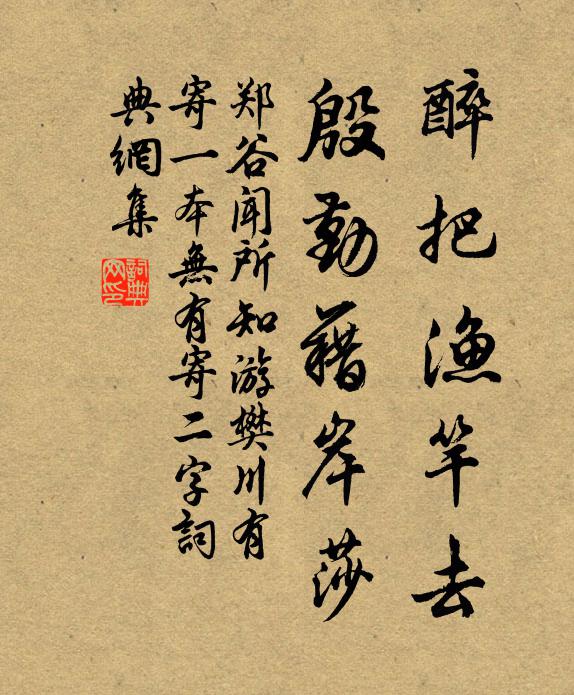 醉把漁竿去
殷勤藉岸莎
郑谷闻所知游樊川有
寄一本無有寄二字詞
典網集
詞典网印